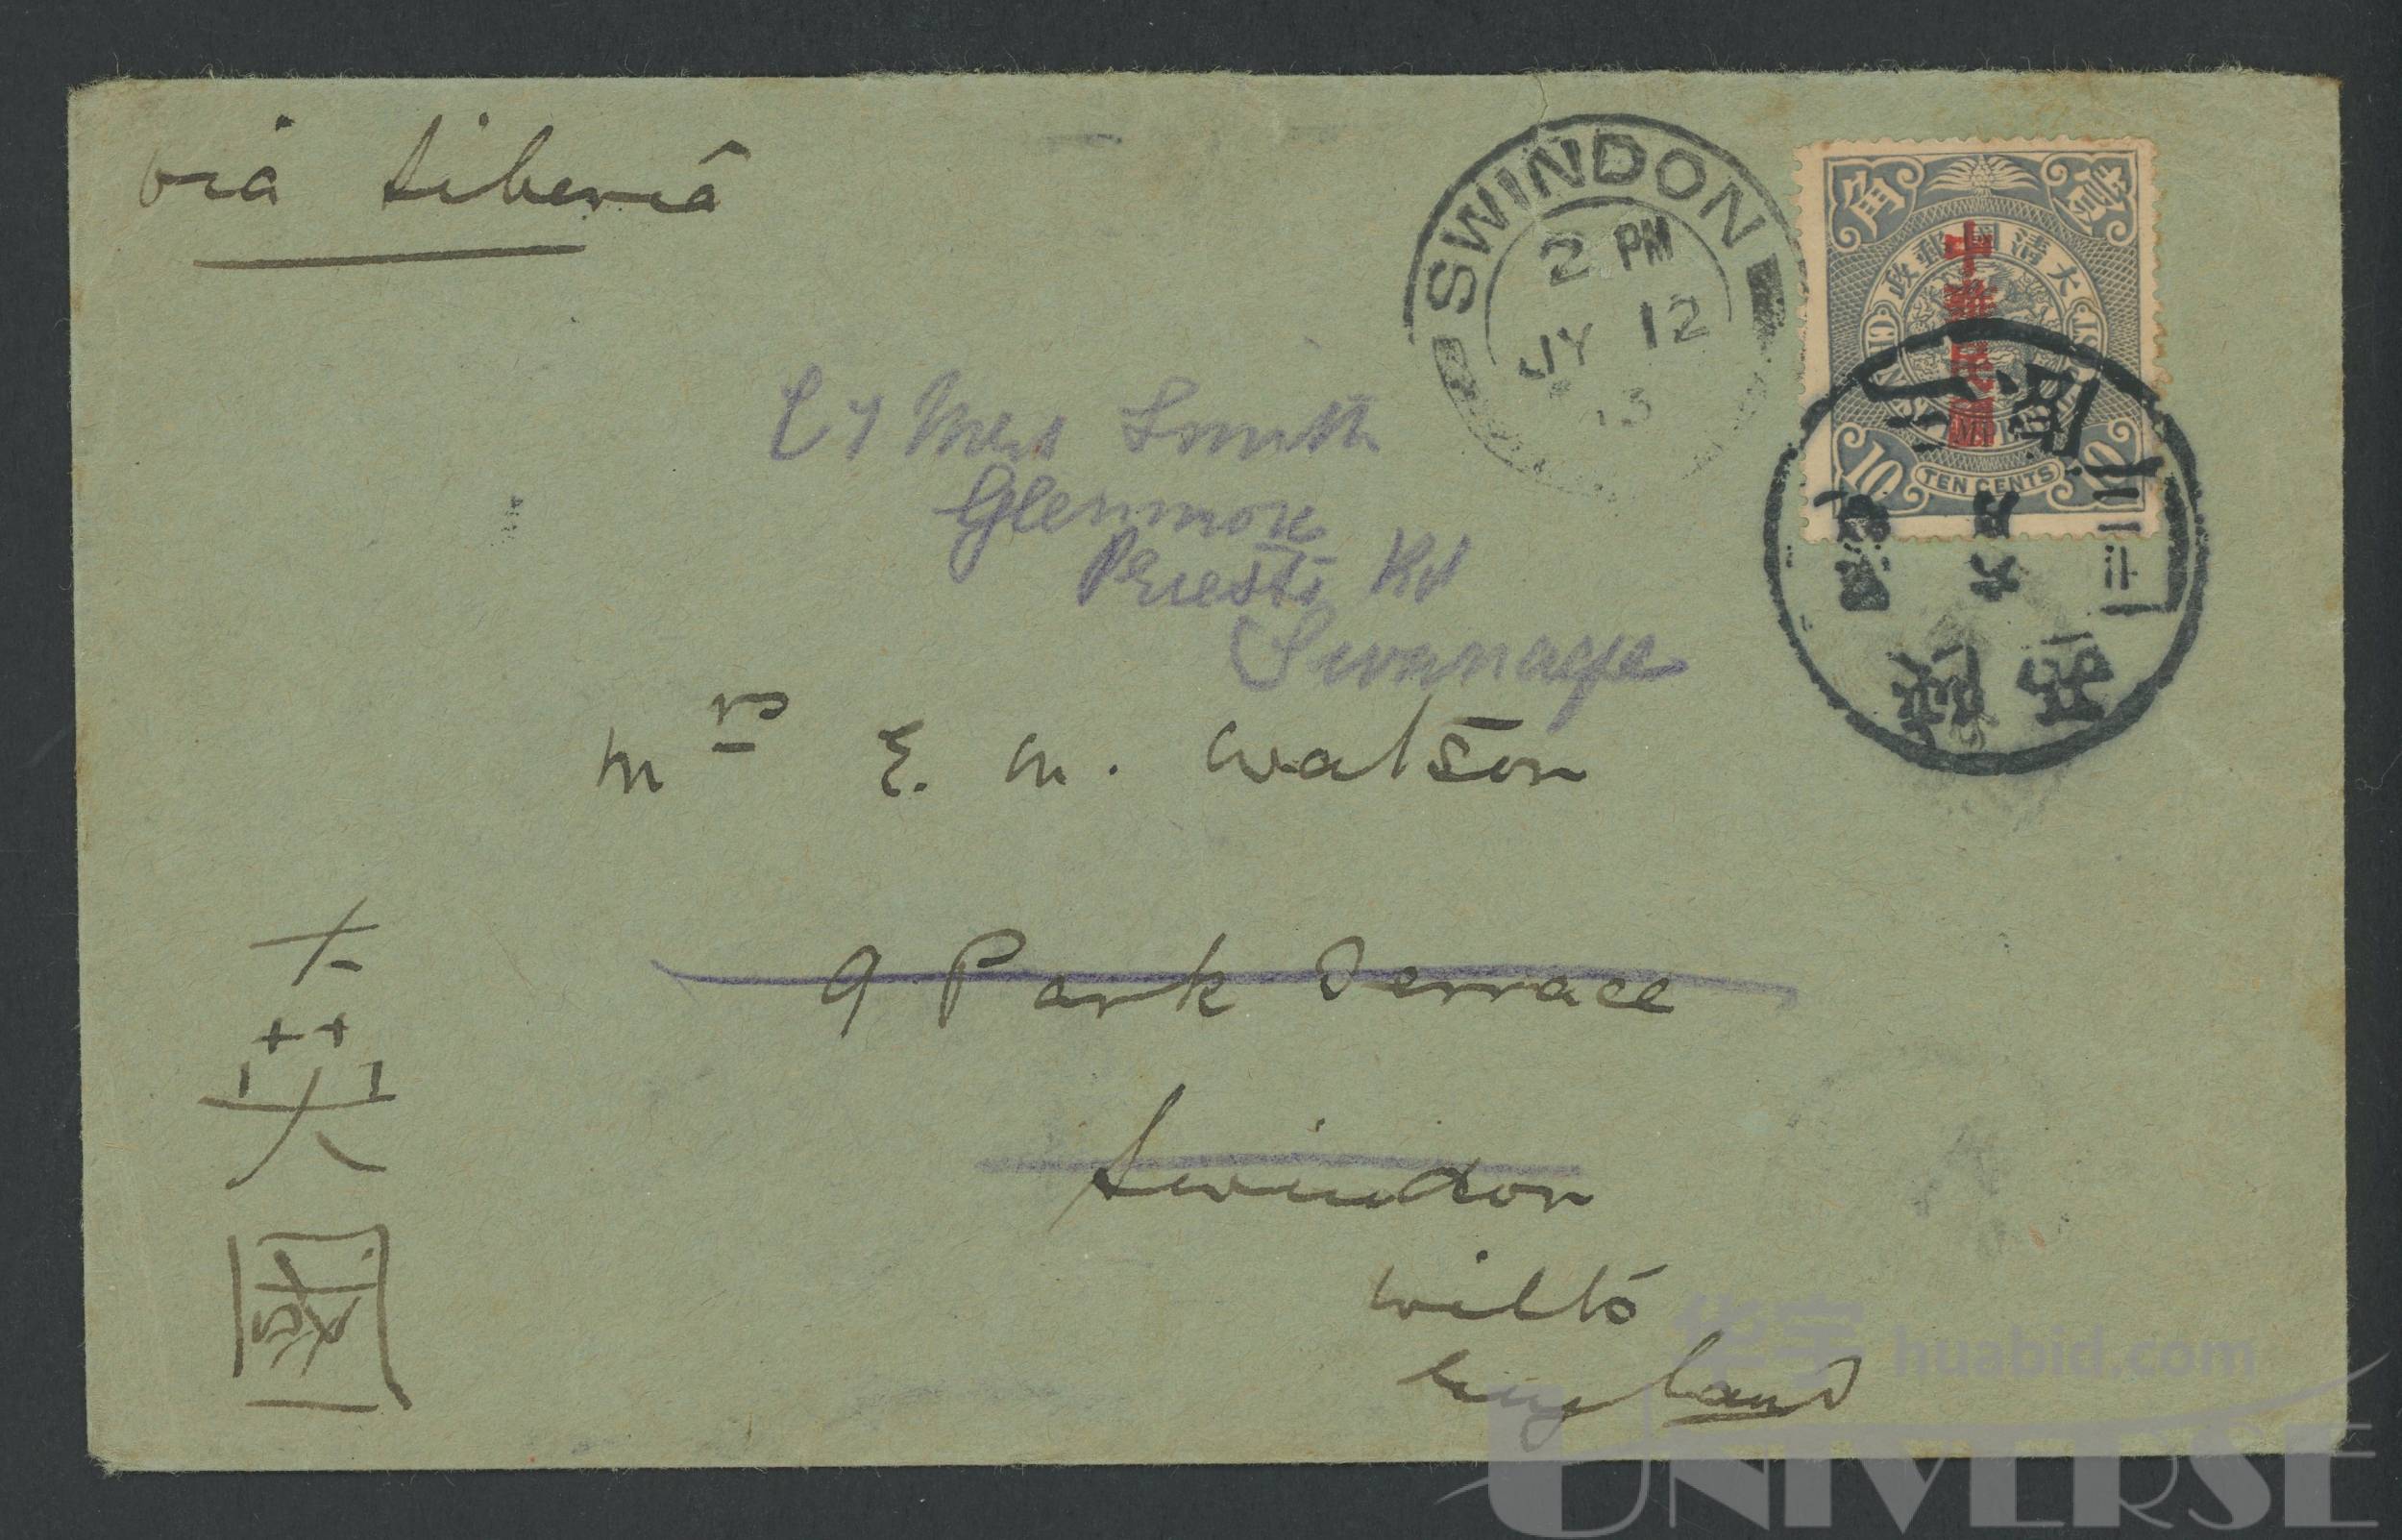 via Siberia
SWINDON
2 PM
JY 12
13
角 壹
大清國郵政
中華民國
10 TEN CENTS 10
C/o Mrs Smith
Glenmore
Priests Rd
Swanage
Mrs E. M. Watson
9 Park Terrace
Swindon
Wilts
England
大
英
國
华宇 huabid.com
UNIVERSE